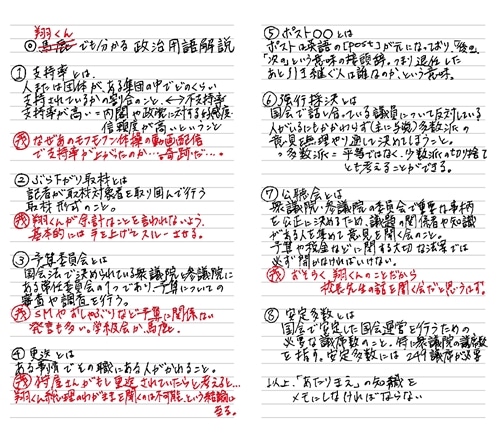 翔くん
◎馬鹿でも分かる政治用語解説
① 支持率とは、
人または団体が、ある集団の中でどのくらい
支持されているかの割合のこと。←→不支持率
支持率が高い＝内閣や政党に対する好感度・
信頼度が高いということ
我 なぜあのモフモフ体操の動画配信
で支持率が上がったのか…。奇跡だ…。
② ぶら下がり取材とは
記者が取材対象者を取り囲んで行う
取材形式のこと。
我 翔くんが余計なことを言わないよう、
基本的には手を上げてスルーさせる。
③ 予算委員会とは
国会法で決められている衆議院と参議院に
ある常任委員会の1つであり、予算についての
審査や調査を行う。
我 SMやおしゃぶりなど予算に関係ない
発言も多い。学級会か、馬鹿。
④ 更迭とは
ある事情でその職にある人がかわること。
我 狩屋さんがもし更迭されていたらと考えると…
翔くん総理のわがままを聞くのは不可能、という結論に
至る。
⑤ ポスト○○とは
ポストは英語の[post]が元になっており、「後の」
「次の」という意味の接頭辞。つまり退任した
あと引き継ぐ人は誰なのか、という意味。
⑥ 強行採決とは
国会で話し合っている議員について反対している
人がいるにもかかわらず(主に与党)多数派の
意見を無理やり通して決めてしまうこと。
→多数派＝平等ではなく、少数派の切り捨て
とも考えることができる。
⑦ 公聴会とは
衆議院・参議院の委員会で重要な事柄
を公正に決めるため、議題の関係者や知識
がある人を集め意見を聞く会のこと。
予算や税金などに関する大切な法案では
必ず開かなければいけない。
我 おそらく翔くんのことだから
校長先生の話を聞く会だと思うはず。
⑧ 安定多数とは
国会で安定した国会運営を行うための
必要な議席数のこと。特に衆議院の議席数
を指す。安定多数には249議席が必要
以上、「あたりまえ」の知識を
メモにしなければならない